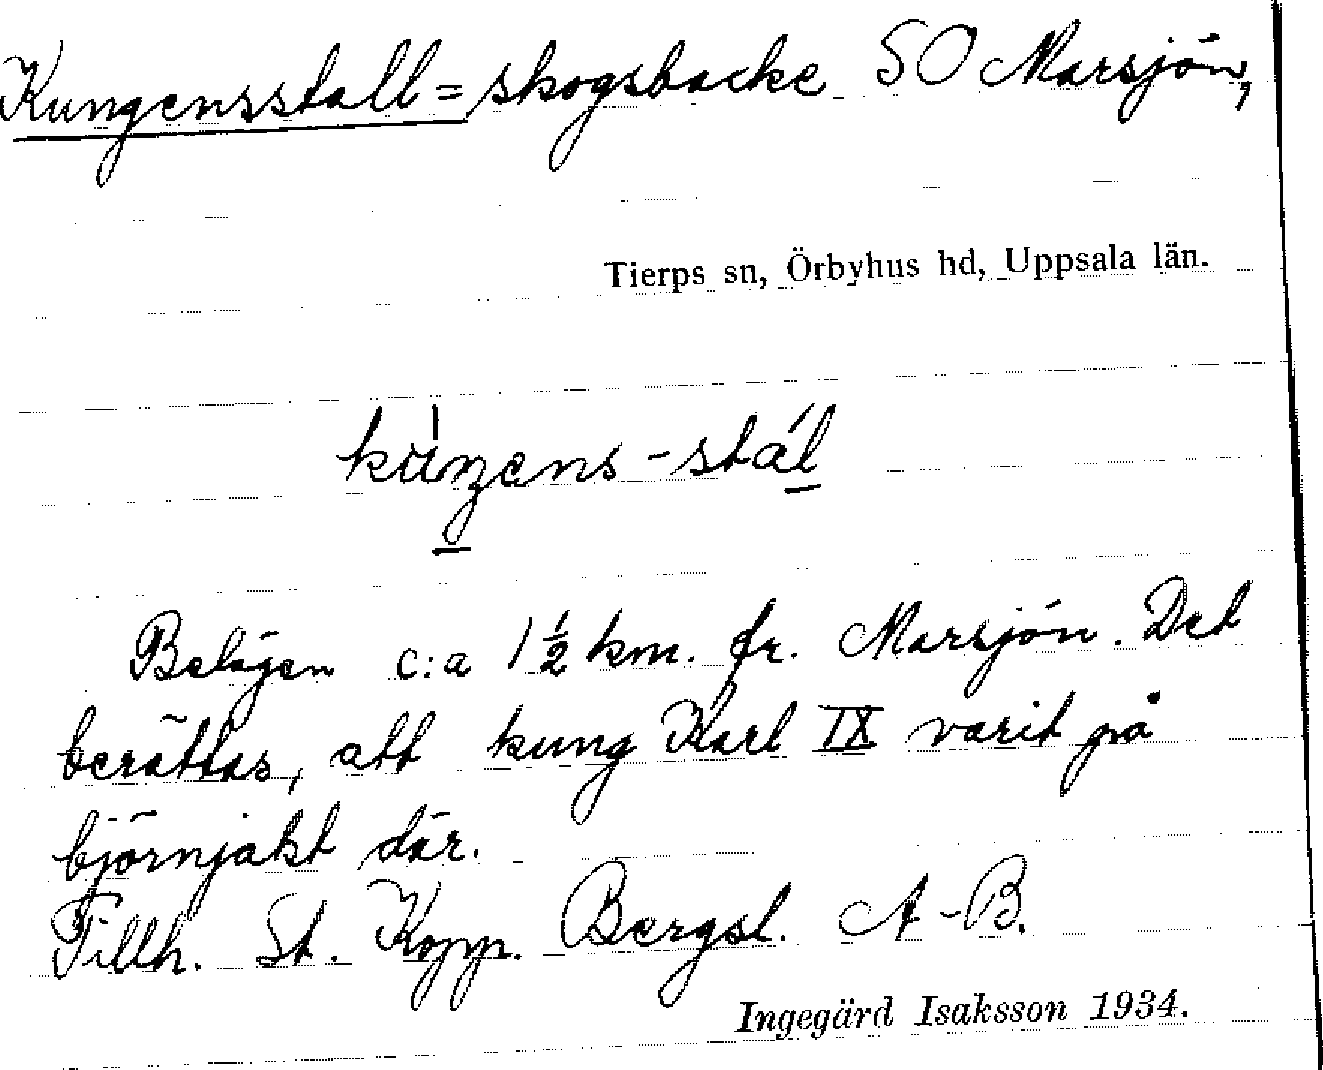 Kungensstall = skogsbacke SO Marsjön,
Tierps sn, Örbyhus hd, Uppsala län.
Belägen c:a 1½ km. fr. Marsjön. Det
berättas, att kung Karl IX varit på
björnjakt där.
Tillh. St. Kopp. Bergsl. A-B.
Ingegärd Isaksson 1934.